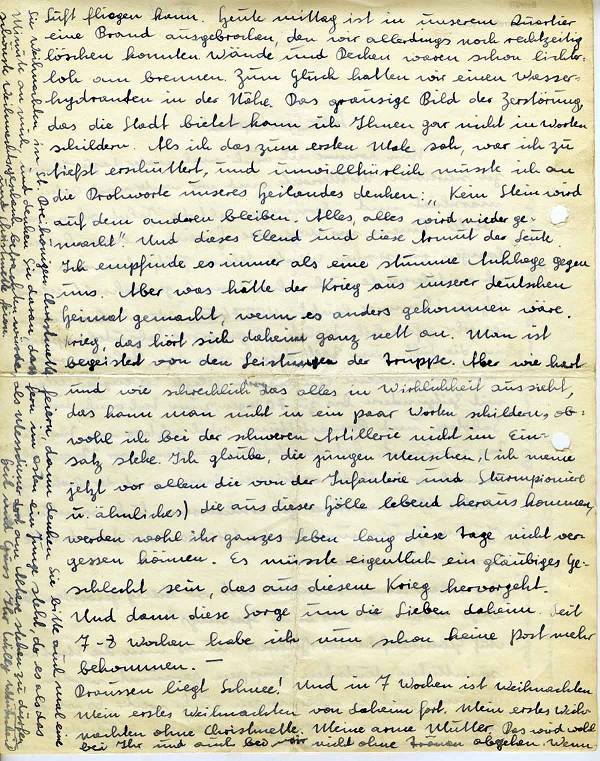 Luft fliegen kann. Heute mittag ist in unserem Quartier
eine Brand ausgebrochen, den wir allerdings noch rechtzeitig
löschen konnten Wände und Decken waren schon lichter-
loh am brennen. Zum Glück hatten wir einen Wasser-
hydranten in der Nähe. Das grausige Bild der Zerstörung,
das die Stadt bietet kann ich Ihnen gar nicht in Worten
schildern. Als ich das zum ersten Male sah, war ich zu
tiefst erschüttert, und unwillkürlich musste ich an
die Drohworte unseres Heilandes denken: „Kein Stein wird
auf dem anderen bleiben. Alles, alles wird niederge-
macht". Und dieses Elend und diese Armut der Leute
Ich empfinde es immer als eine stumme Anklage gegen
uns. Aber was hätte der Krieg aus unserer deutschen
Heimat gemacht, wenn es anders gekommen wäre.
Krieg, das hört sich daheim ganz nett an. Man ist
begeistert von den Leistungen der Truppe. Aber wie hart
und wie schrecklich das alles in Wirklichkeit aussieht,
das kann man nicht in ein paar Worten schildern, ob-
wohl ich bei der schweren Artillerie nicht im Ein-
satz stehe. Ich glaube, die jungen Menschen, (ich meine
jetzt vor allem die von der Infanterie und Sturmpioniere
u. ähnliches) die aus dieser Hölle lebend heraus kommen,
werden wohl ihr ganzes Leben lang diese Tage nicht ver-
gessen können. Es müsste eigentlich ein gläubiges Ge-
schlecht sein, das aus diesem Krieg hervorgeht.
Und dann diese Sorge um die Lieben daheim. Seit
7-8 Wochen habe ich nun schon keine Post mehr
bekommen. —
Draussen liegt Schnee! Und in 7 Wochen ist Weihnachten
Mein erstes Weihnachten von daheim fort. Mein erstes Weih-
nachten ohne Christmette. Meine arme Mutter. Das wird wohl
bei Ihr und auch bei mir nicht ohne Tränen abgehen. Wenn
Sie Weihnachten in St. Dreikönigen Christmette feiern, dann denken Sie bitte auch mal eine
Minute an mich und denken Sie daran, dass fern im Osten ein Junge steht der es als das
schönste Weihnachtsgeschenk betrachten würde, als Messdiener dort am Altare stehen zu dürfen
und Christmette feiern.
Gruss Ihr Willy